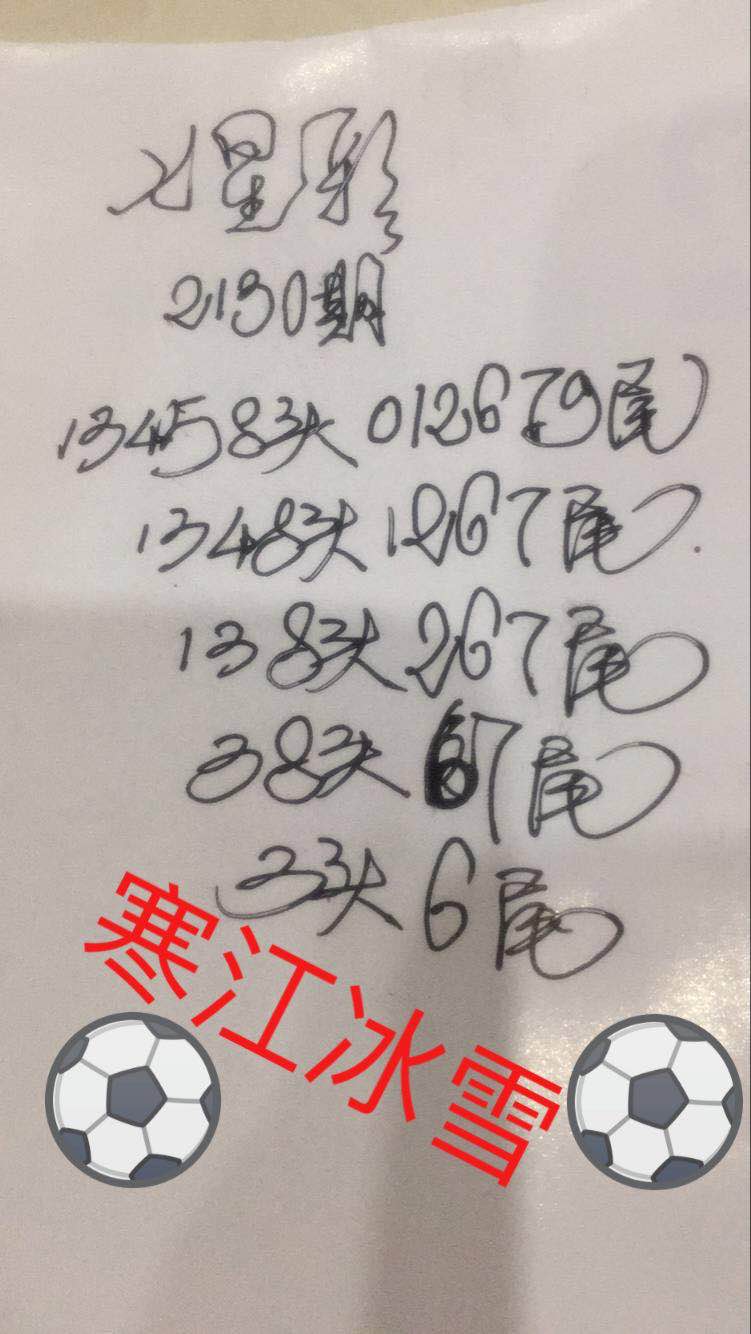 七星彩
2130期
134583头 012679尾
13483头 1267尾
1383头 267尾
383头 67尾
33头 6尾
寒江冰雪